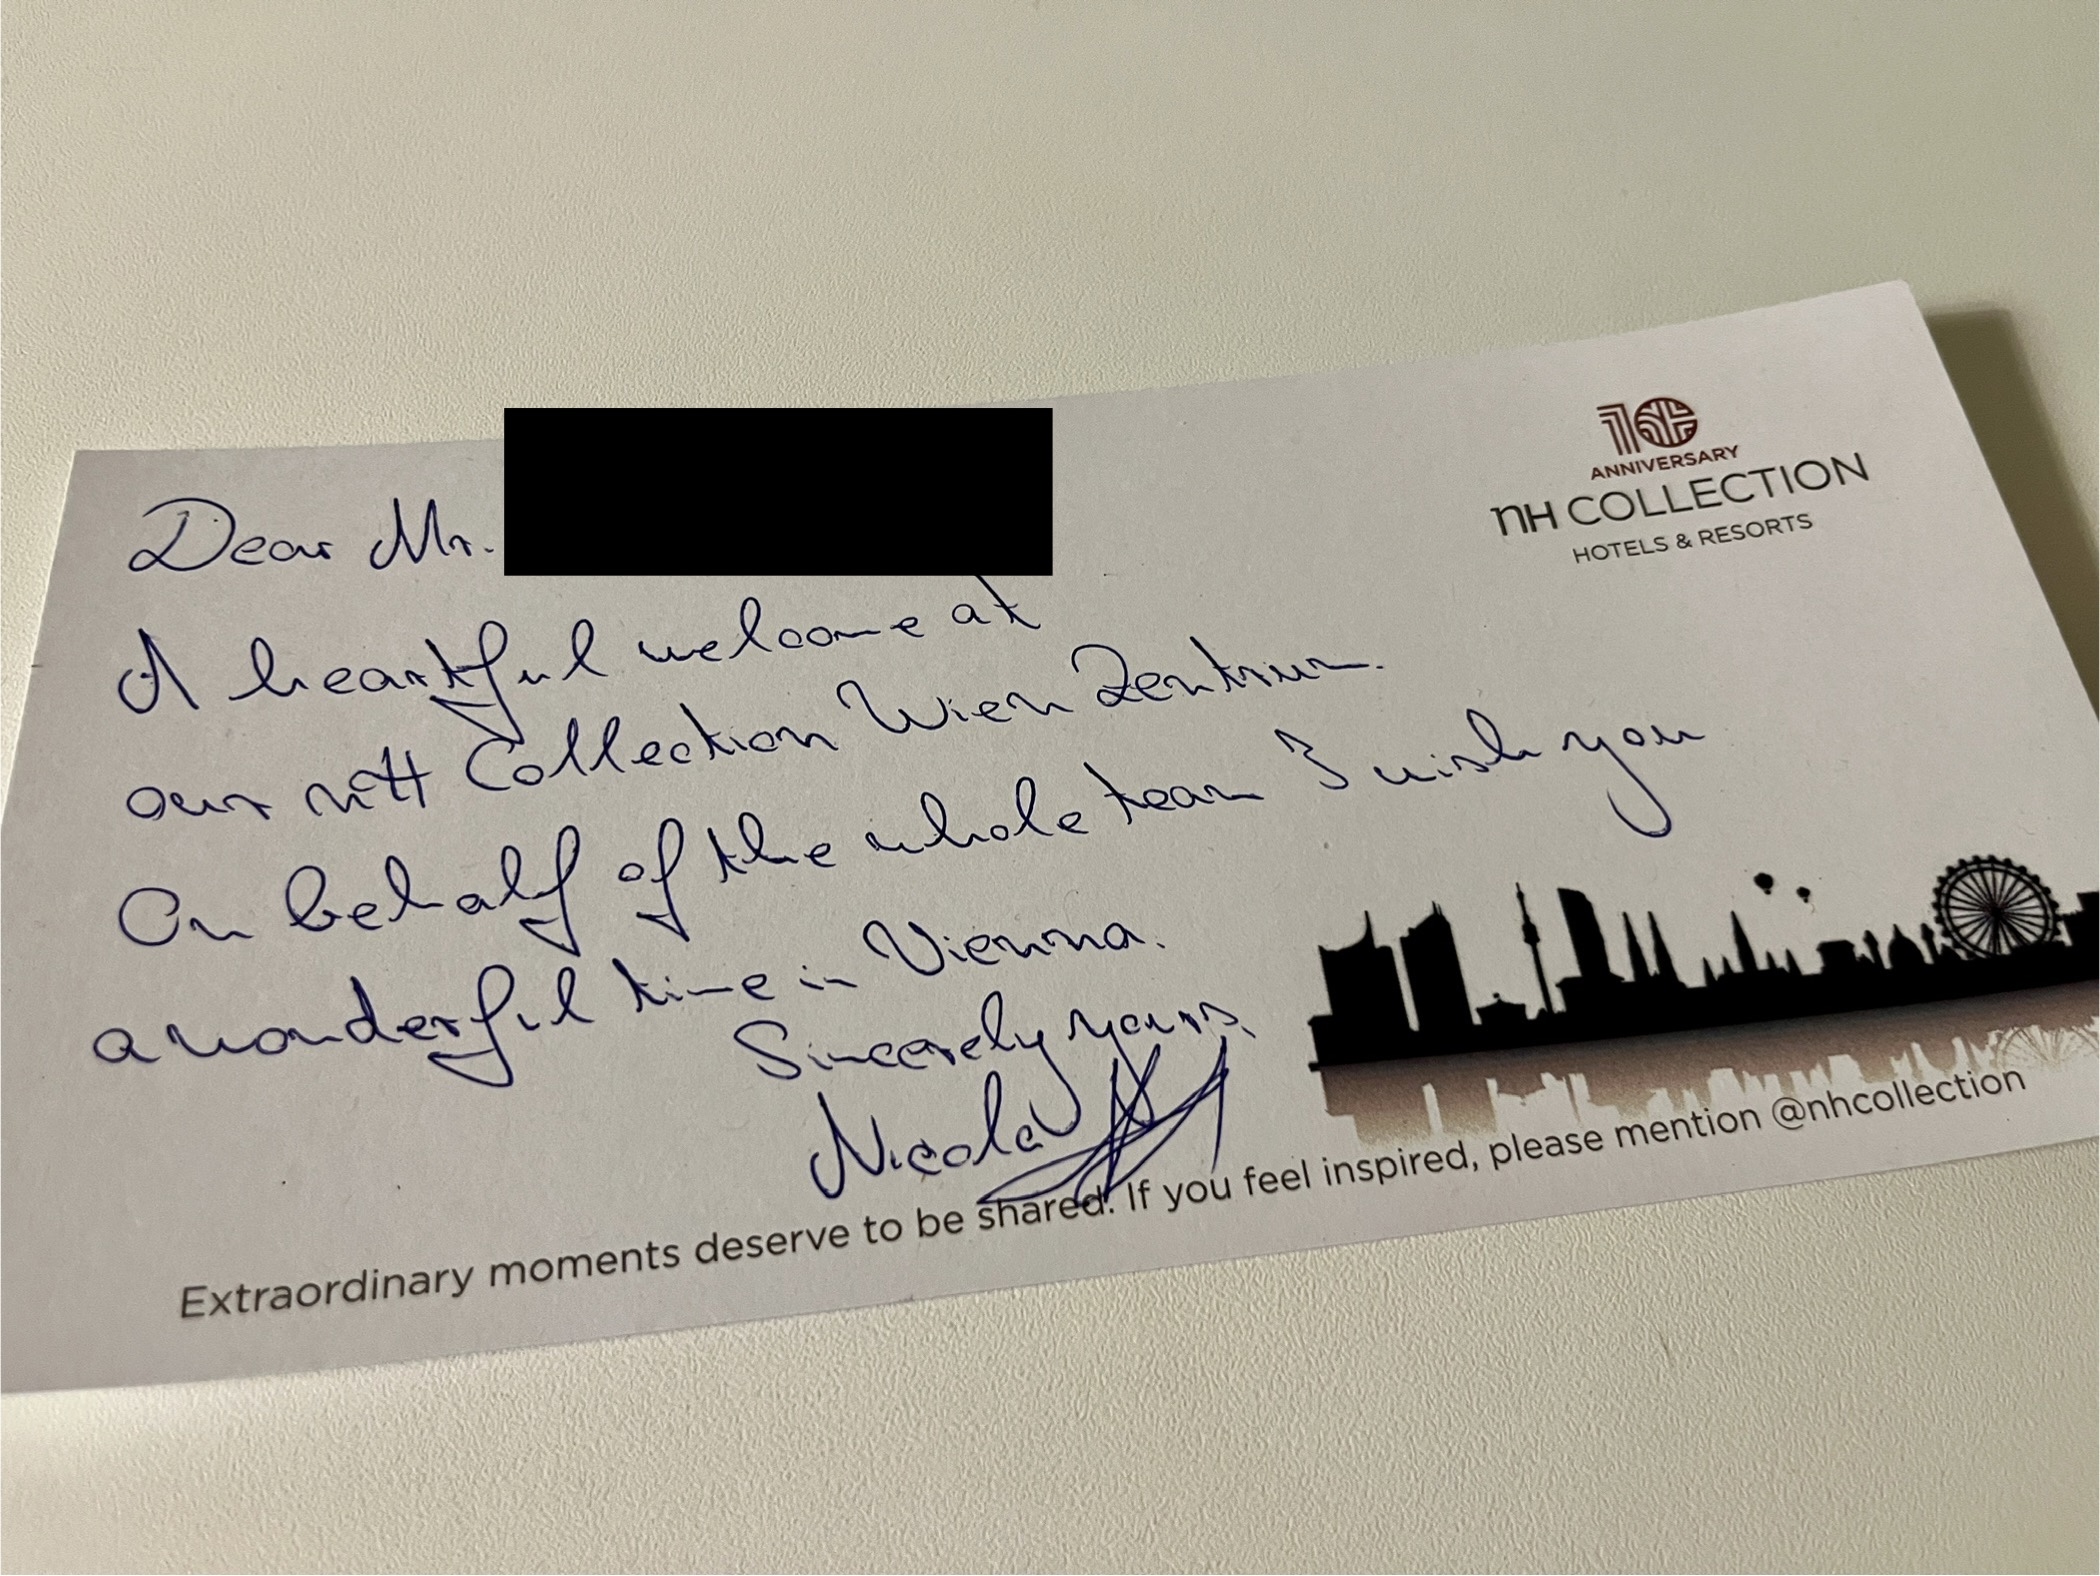 Dear Mr.
A heartful welcome at
our nH Collection Wien Zentrum.
On behalf of the whole team I wish you
a wonderful time in Vienna.
Sincerely yours,
Nicola
10
ANNIVERSARY
nH COLLECTION
HOTELS & RESORTS
Extraordinary moments deserve to be shared. If you feel inspired, please mention @nhcollection